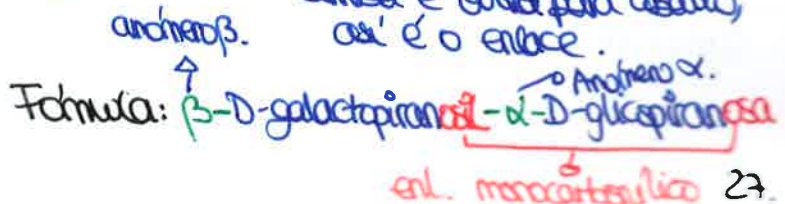 anómero β. así é o enlace.
Anómero α.
Fórmula: β-D-galactopiranosil-α-D-glicopiranosa
enl. monocarbonílico 27.